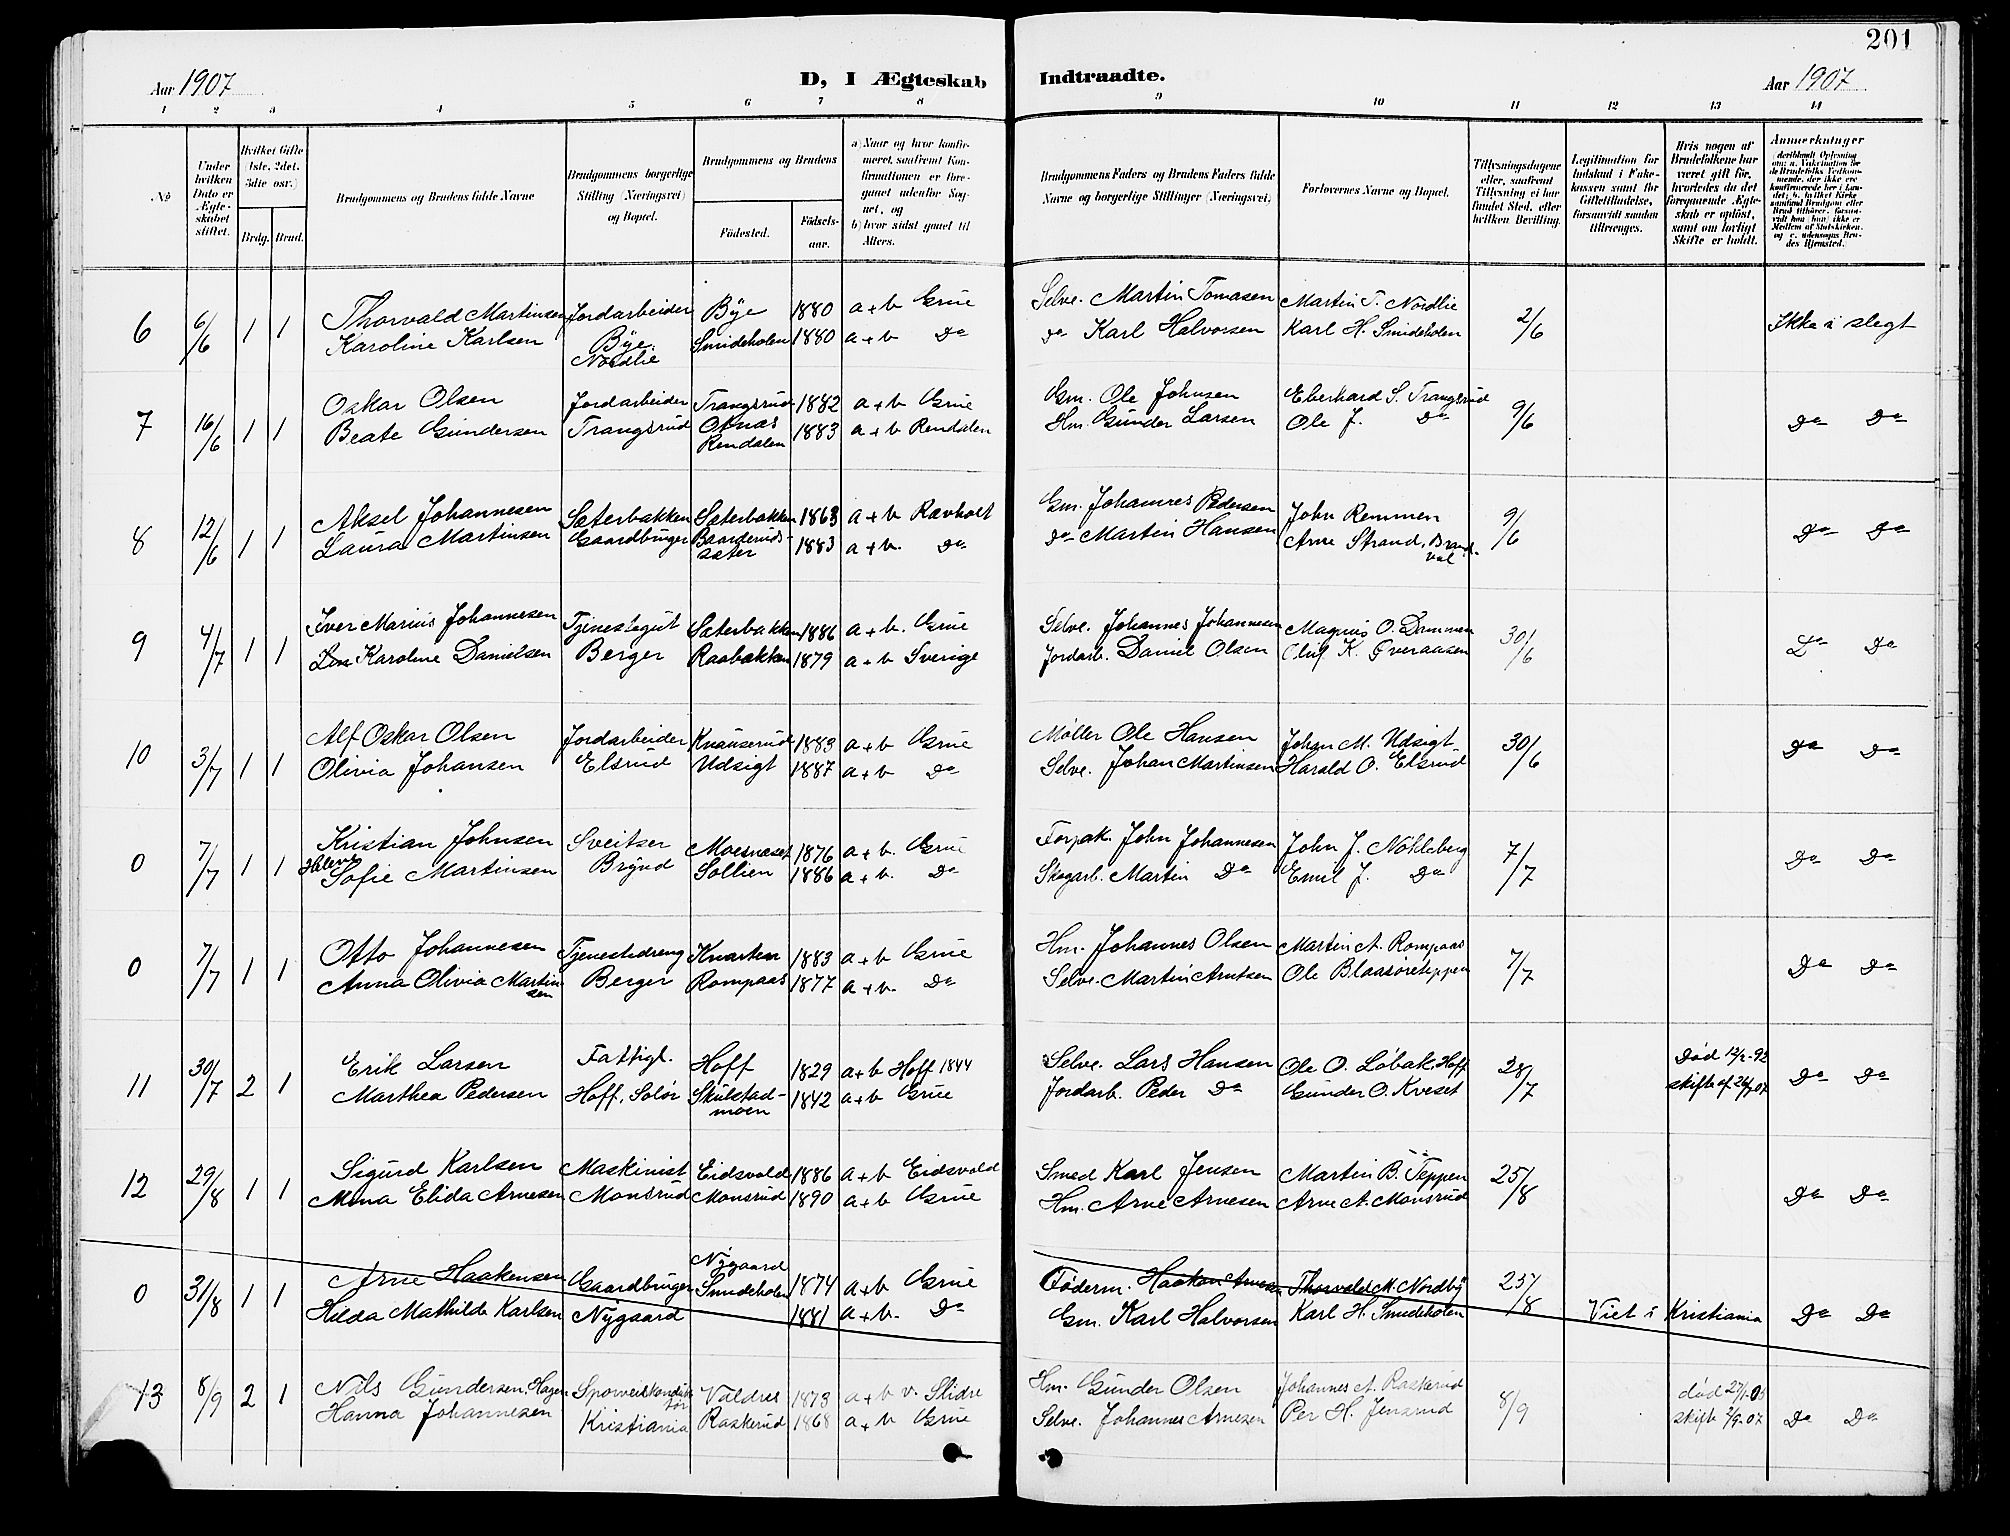 201
Aar 1907
D, I Ægteskab
Indtraadte.
Aar 1907
1 2 3 4 5 6 7 8 9 10 11 12 13 14
No
Under hvilken Dato er Ægteskabet stiftet.
Hvilket Gifte (1ste, 2det, 3die osv.)
Brdg. Brud.
Brudgommens og Brudens fulde Navne
Brudgommens borgerlige Stilling (Næringsvei) og Bopæl.
Brudgommens og Brudens
Fødested.
Fødselsaar.
a) Naar og hvor konfirmeret, saafremt Konfirmationen er foregaaet udenfor Sognet, og
b) hvor sidst gaaet til Alters.
Brudgommens Faders og Brudens Faders fulde Navne og borgerlige Stillinger (Næringsvei)
Forlovernes Navne og Bopæl.
Tillysningsdagene eller, saafremt Tillysning ei har fundet Sted, efter hvilken Bevilling.
Legitimation for Indskud i Enkekassen samt for Giftetilladelse, forsaavidt saadan tiltrænges.
Hvis nogen af Brudefolkene har været gift før, hvorledes da det foregaaende Ægteskab er opløst, samt om lovligt Skifte er holdt.
Anmerkninger
6 6/6 1 1 Thorvald Martinsen Jordarbeider Bye 1880 a+b Grue Selve. Martin Tomasen Martin T. Nordlie 2/6 Ikke i slegt
Karoline Karlsen Bye, Nordlie Smideholen 1880 a+b Do Do Karl Halvorsen Karl H. Smideholen
7 16/6 1 1 Oskar Olsen Jordarbeider Trangsrud 1882 a+b Grue Gm. Ole Johnsen Eberhard S. Trangsrud 9/6 Do Do
Beate Gundersen Trangsrud Otnæs Rendalen 1883 a+b Rendalen Hm. Gunder Larsen Ole J. Do
8 12/6 1 1 Aksel Johannesen Sæterbakken Sæterbakken 1863 a+b Rævholt Gm. Johannes Pedersen John Remmen 9/6 Do Do
Laura Martinsen Gaardbruger Baarderudsæter 1883 a+b. Do Do Martin Hansen Arne Strand, Brandval
9 4/7 1 1 Iver Marius Johannesen Tjenestegut Sæterbakken 1886 a+b. Grue Selve. Johannes Johannesen Magnus O. Dammen 30/6 Do Do
Karoline Danielsen Berger Raabakken 1879 a+b Sverige Jordarb. Daniel Olsen Oluf K. Gveraasen
10 3/7 1 1 Alf Oskar Olsen Jordarbeider Knauserud 1883 a+b Grue Møller Ole Hansen Johan M. Udsigt 30/6 Do Do
Olivia Johansen Elsrud Udsigt 1887 a+b Do Selve. Johan Martinsen Harald O. Elsrud
0 7/7 1 1 Kristian Johnsen Sveitser Moesnæset 1876 a+b. Grue Forpak. John Johannesen John J. Nøkleberg 7/7 Do Do
Helene Sofie Martinsen Brynd Sollien 1886 a+b. Do Skogarb. Martin Do Emil J. Do
0 7/7 1 1 Otto Johannesen Tjenestedreng Kvarten 1883 a+b Grue Hm. Johannes Olsen Martin A. Rompaas 7/7 Do Do
Anna Olivia Martinsen Berger Rompaas 1877 a+b. Do Selve. Martin Arntsen Ole Blaasøreteppen
11 30/7 2 1 Erik Larsen Fattigl. Hoff 1829 a+b Hoff 1844 Selve. Lars Hansen Ole O. Løbak, Hoff 28/7 død 12/2-92 Do Do
Marthea Pedersen Hoff, Solør Skulstadmoen 1842 a+b Grue Jordarb. Peder Do Gunder O. Kveset skifte af 26/7 07
12 29/8 1 1 Sigurd Karlsen Maskinist Eidsvold 1886 a+b Eidsvold Smed Karl Jensen Martin B. Teppen 25/8 Do Do
Mina Elida Arnesen Monsrud Monsrud 1890 a+b Grue Hm. Arne Arnesen Arne A. Monsrud
0 31/8 1 1 Arne Haakensen Gaardbruger Nygaard 1874 a+b Grue Føderm. Haakon Arnesen Thorvald M. Nordby 25/8 Viet i Kristiania Do Do
Hilda Mathilde Karlsen Nygaard Smideholen 1881 a+b. Do Gm. Karl Halvorsen Karl H. Smideholen
13 8/9 2 1 Nils Gundersen Hagen Sporveiskonduktør Valdres 1873 a+b v. Slidre Hm. Gunder Olsen Johannes A. Raskerud 8/9 død 27/1-05 Do Do
Hanna Johannesen Kristiania Raskerud 1868 a+b Grue Selve. Johannes Arnesen Per H. Jensrud skifte 2/9-07